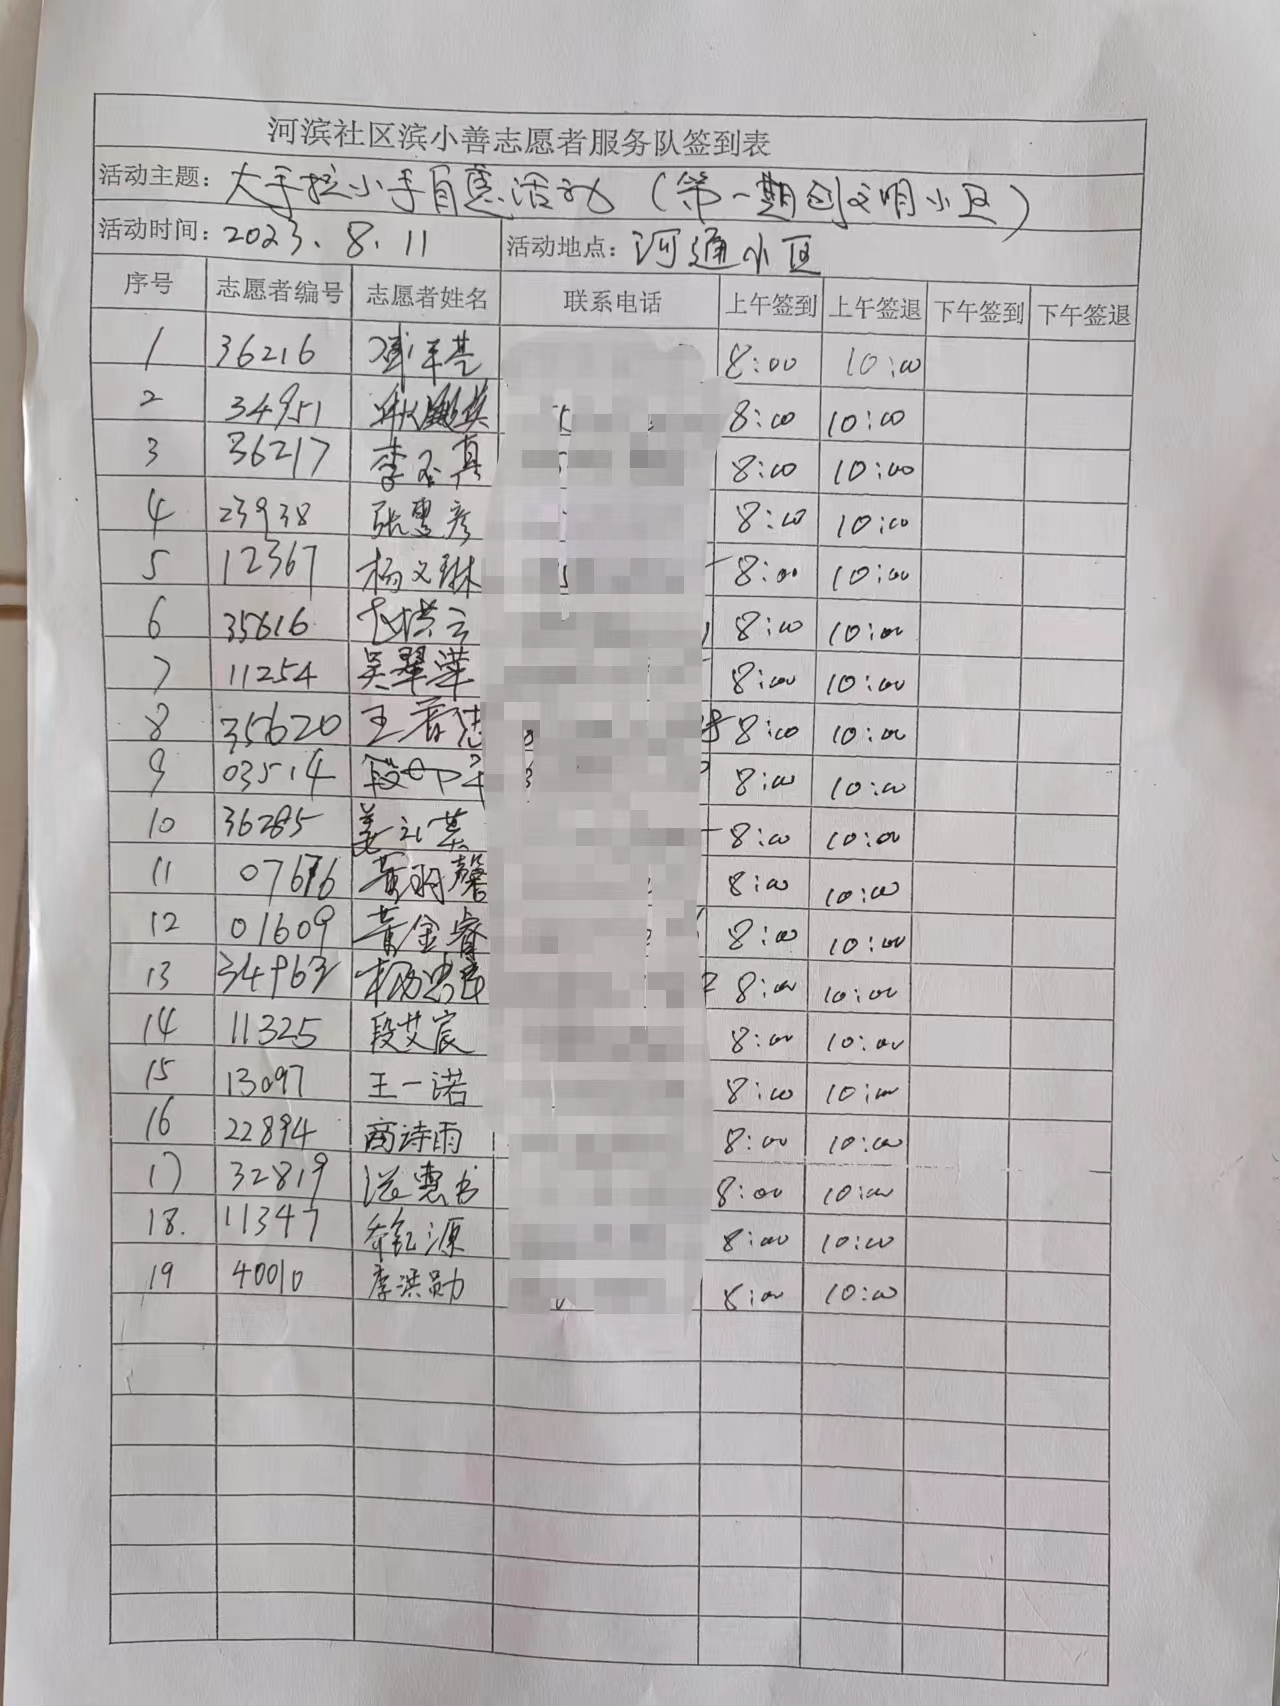 河滨社区滨小善志愿者服务队签到表
活动主题：大手拉小手自愿活动（第一期创文明小区）
活动时间：2023.8.11 活动地点：河通小区
序号 志愿者编号 志愿者姓名 联系电话 上午签到 上午签退 下午签到 下午签退
1 36216 8:00 10:00
2 34951 8:00 10:00
3 36217 李玉真 8:00 10:00
4 23938 张雪彦 8:00 10:00
5 12367 杨文琳 8:00 10:00
6 35616 8:00 10:00
7 11254 吴翠萍 8:00 10:00
8 35620 王 8:00 10:00
9 03514 段 8:00 10:00
10 36285 姜 8:00 10:00
11 07676 黄羽馨 8:00 10:00
12 01609 黄金睿 8:00 10:00
13 34963 杨 8:00 10:00
14 11325 段艾宸 8:00 10:00
15 13097 王一诺 8:00 10:00
16 22894 商诗雨 8:00 10:00
17 32819 8:00 10:00
18. 11347 源 8:00 10:00
19 40010 李洪勋 8:00 10:00